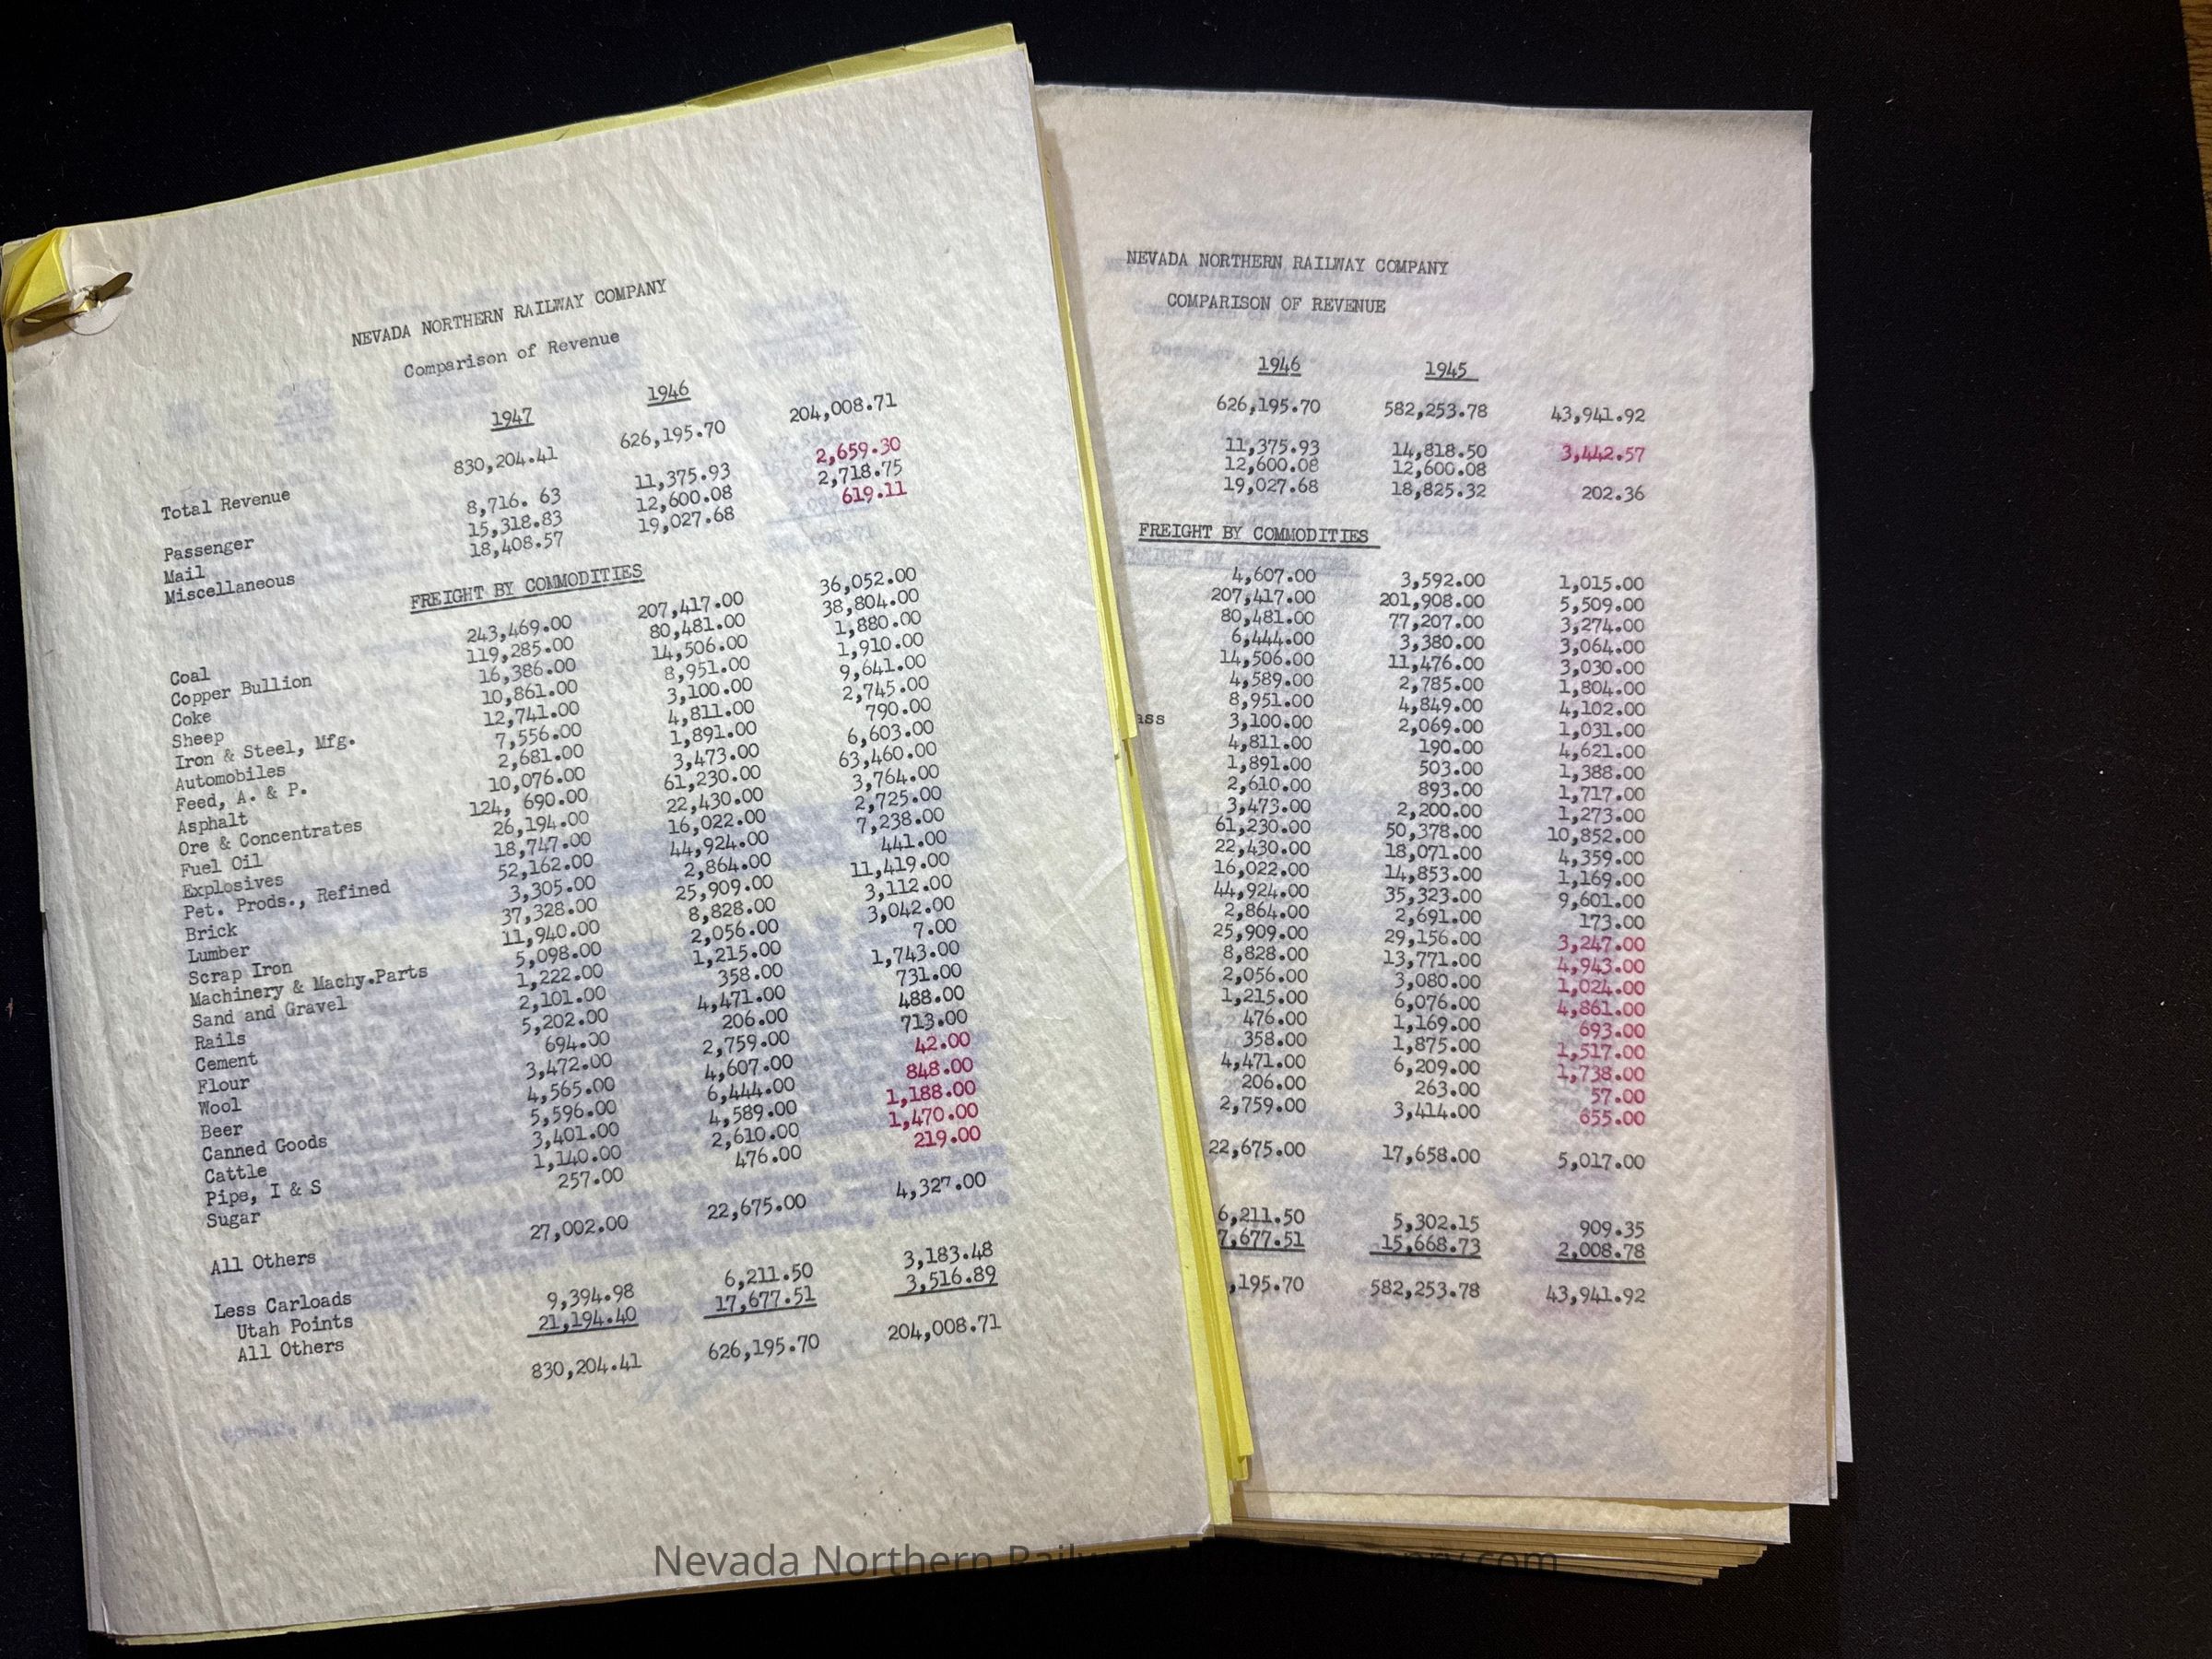 NEVADA NORTHERN RAILWAY COMPANY
Comparison of Revenue
1947 1946
Total Revenue 830,204.41 626,195.70 204,008.71
Passenger 8,716. 63 11,375.93 2,659.30
Mail 15,318.83 12,600.08 2,718.75
Miscellaneous 18,408.57 19,027.68 619.11
FREIGHT BY COMMODITIES
Coal 243,469.00 207,417.00 36,052.00
Copper Bullion 119,285.00 80,481.00 38,804.00
Coke 16,386.00 14,506.00 1,880.00
Sheep 10,861.00 8,951.00 1,910.00
Iron & Steel, Mfg. 12,741.00 3,100.00 9,641.00
Automobiles 7,556.00 4,811.00 2,745.00
Feed, A. & P. 2,681.00 1,891.00 790.00
Asphalt 10,076.00 3,473.00 6,603.00
Ore & Concentrates 124, 690.00 61,230.00 63,460.00
Fuel Oil 26,194.00 22,430.00 3,764.00
Explosives 18,747.00 16,022.00 2,725.00
Pet. Prods., Refined 52,162.00 44,924.00 7,238.00
Brick 3,305.00 2,864.00 441.00
Lumber 37,328.00 25,909.00 11,419.00
Scrap Iron 11,940.00 8,828.00 3,112.00
Machinery & Machy.Parts 5,098.00 2,056.00 3,042.00
Sand and Gravel 1,222.00 1,215.00 7.00
Rails 2,101.00 358.00 1,743.00
Cement 5,202.00 4,471.00 731.00
Flour 694.00 206.00 488.00
Wool 3,472.00 2,759.00 713.00
Beer 4,565.00 4,607.00 42.00
Canned Goods 5,596.00 6,444.00 848.00
Cattle 3,401.00 4,589.00 1,188.00
Pipe, I & S 1,140.00 2,610.00 1,470.00
Sugar 257.00 476.00 219.00
All Others 27,002.00 22,675.00 4,327.00
Less Carloads
Utah Points 9,394.98 6,211.50 3,183.48
All Others 21,194.40 17,677.51 3,516.89
830,204.41 626,195.70 204,008.71
NEVADA NORTHERN RAILWAY COMPANY
COMPARISON OF REVENUE
1946 1945
626,195.70 582,253.78 43,941.92
11,375.93 14,818.50 3,442.57
12,600.08 12,600.08
19,027.68 18,825.32 202.36
FREIGHT BY COMMODITIES
4,607.00 3,592.00 1,015.00
207,417.00 201,908.00 5,509.00
80,481.00 77,207.00 3,274.00
6,444.00 3,380.00 3,064.00
14,506.00 11,476.00 3,030.00
4,589.00 2,785.00 1,804.00
8,951.00 4,849.00 4,102.00
ass 3,100.00 2,069.00 1,031.00
4,811.00 190.00 4,621.00
1,891.00 503.00 1,388.00
2,610.00 893.00 1,717.00
3,473.00 2,200.00 1,273.00
61,230.00 50,378.00 10,852.00
22,430.00 18,071.00 4,359.00
16,022.00 14,853.00 1,169.00
44,924.00 35,323.00 9,601.00
2,864.00 2,691.00 173.00
25,909.00 29,156.00 3,247.00
8,828.00 13,771.00 4,943.00
2,056.00 3,080.00 1,024.00
1,215.00 6,076.00 4,861.00
476.00 1,169.00 693.00
358.00 1,875.00 1,517.00
4,471.00 6,209.00 1,738.00
206.00 263.00 57.00
2,759.00 3,414.00 655.00
22,675.00 17,658.00 5,017.00
6,211.50 5,302.15 909.35
7,677.51 15,668.73 2,008.78
,195.70 582,253.78 43,941.92
Nevada Northern